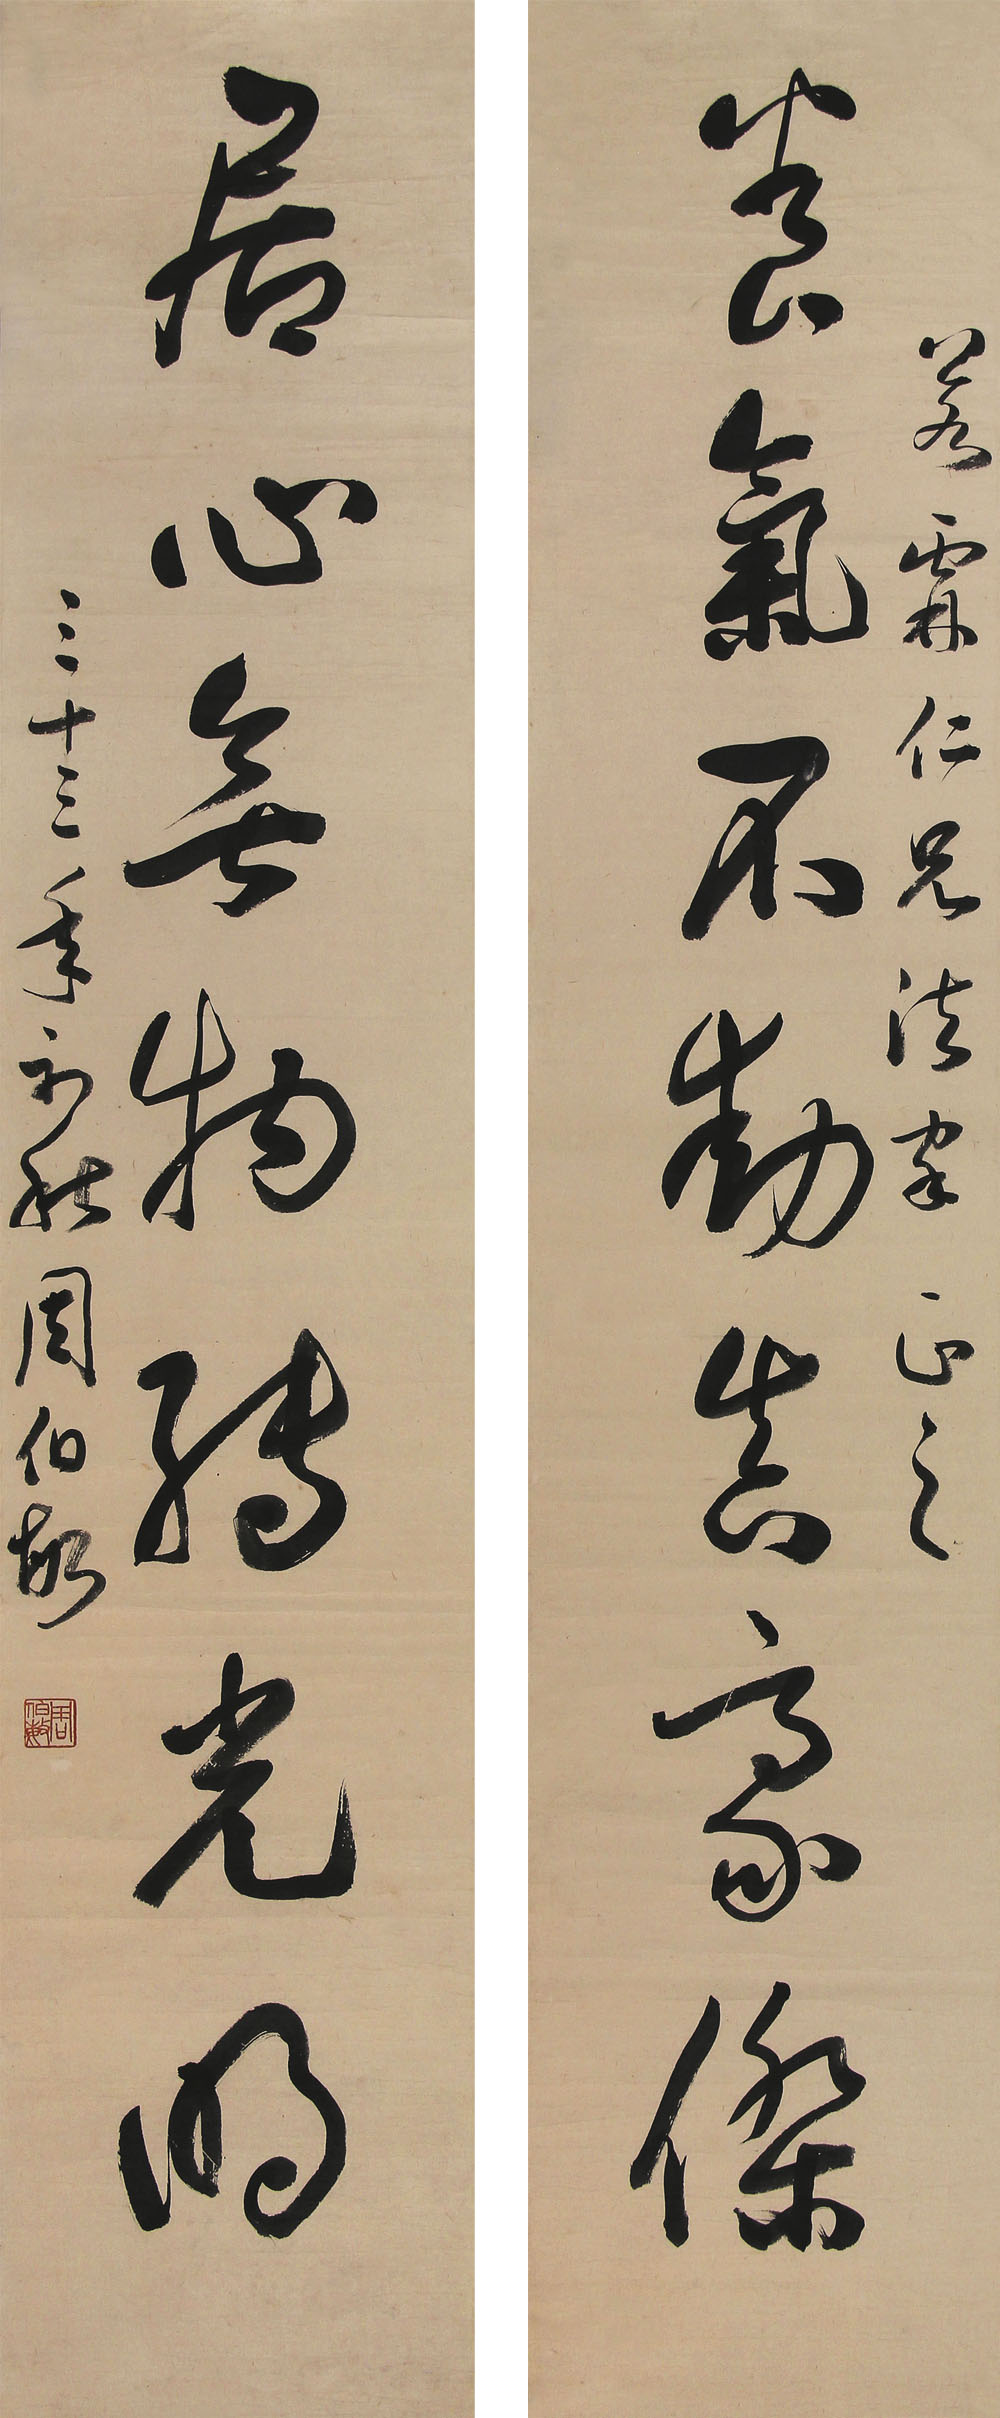 若霖仁兄法家正之
養氣不動真豪傑
居心無物轉光明
三十三年初秋周伯敏
周伯敏